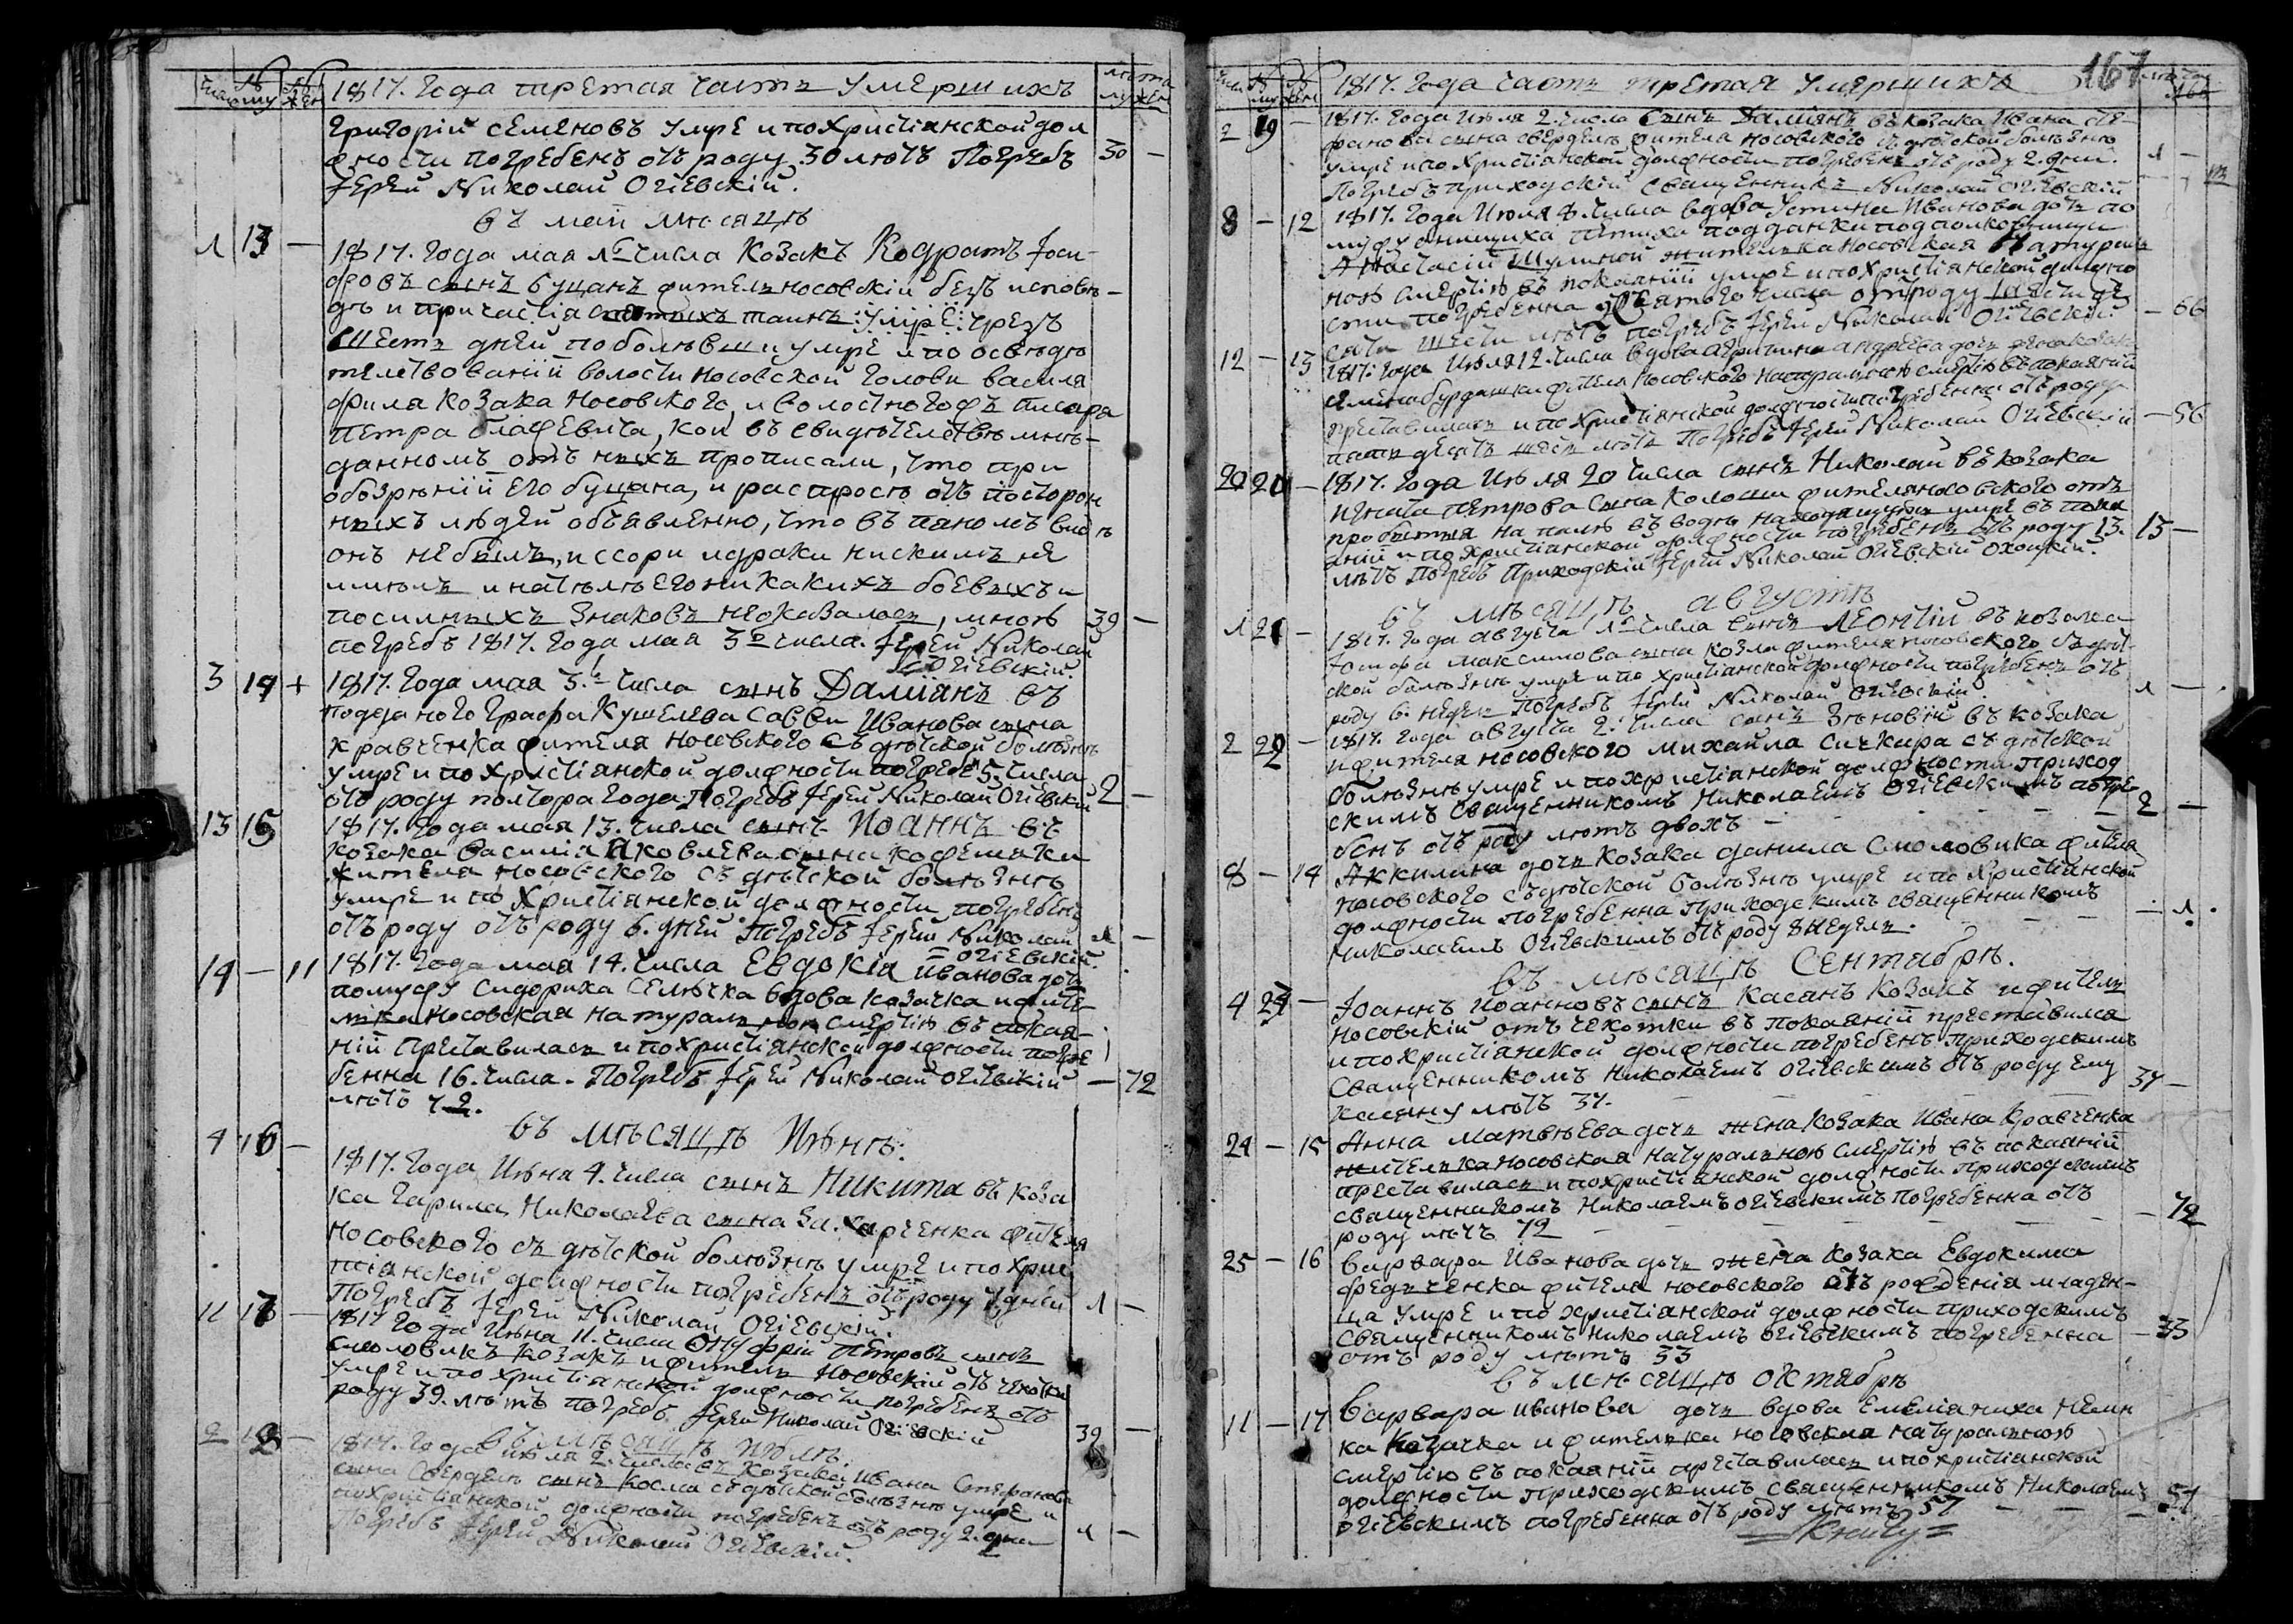 1817. Года третая часть Умершихъ
Григорій Семеновъ Умре и по Христіанской дол
жности погребенъ отъ роду 30 лѣтъ Погребъ 30 —
Іерей Николай Огіевскій.
въ маи мѣсяцѣ
1 13 — 1817. Года мая 1го числа Козакъ Кодратъ Іоси-
фовъ сынъ Буцанъ житель носовскій безъ исповѣ-
ди и причастія святыхъ таинъ умре: чрезъ
Шесть дней поболѣвши умре и по освѣдѣ
тельствованіи волости Носовской Головы Василя
фриля Козака Носовского, и волостногожъ писара
Петра Влажевича, кои въ свидѣтельствѣ мнѣ-
данномъ отъ нихъ прописали, что при
обозрѣніи его буцана, и распросѣ отъ посторон
ныхъ людей объявленно, что въ пяномъ видѣ
онъ небылъ, и ссори идраки нискимъ не
имѣлъ и на тѣлѣ его никакихъ боевыхъ и
посилныхъ знаковъ неоказалось, мною 39 —
погребъ 1817. Года мая 3го числа. Іерей Николай
Огіевскій.
3 14 + 1817. Года мая 3. числа сынъ Даміянъ въ
подданого Графа Кушелева Саввы Иванова сына
кравченка жителя носовского съ дѣтской болѣзнѣ
умре и по Христіянской должности погребъ 5. числа
отъ роду полтора года. Погребъ Іерей Николай Огіевскій 2 —
13 15 1817. Года мая 13. числа сынъ Иоаннъ въ
козака Василія Яковлева сына кожемяки
жителя носовского съ дѣтской болѣзнѣ
умре и по Христіянской должности погребенъ
отъ роду отъ роду 6. дней. Погребъ Іерей Николай 1 —
Огіевскій.
14 — 11 1817. Года мая 14. числа Евдокія Иванова дочь
помужу Сидориха Селѣчка вдова Козачка и жите-
лька Носовская натуральною смертію въ покая-
ніи Преставилась и по христіянской должности погре
бенна 16. числа. Погребъ Іерей Николай Огіевскій — 72
лѣтъ 72.
въ мѣсяцѣ Июнѣ:
4 16 — 1817. Года Июня 4. числа сынъ Никита въ Коза
ка Гарила Николаева сына Захарченка жителя
Носовского съ дѣтской болѣзнѣ умре и по Хрис
тіянской должности погребенъ отъ роду дней 1 —
Погребъ Іерей Николай Огіевскій.
11 17 — 1817 Года Июня 11. числа Онуфрій Петровъ сынъ
Смоловикъ Козакъ и житель Носовскій отъ чехотки
умре и по христіянской должности погребенъ отъ
роду 39. лѣтъ погребъ Іерей Николай Огіевскій 39 —
въ мѣсяцѣ июлѣ.
2 18 — 1817. Года июля 2. числа въ Козака Ивана Стефанова
сына Свердели сынъ Косма съ дѣтской болѣзнѣ умре и
по христіянской должности погребенъ отъ роду 2. дни 1 —
Погребъ Іерей Николай Огіевскій.
167
1817. Года часть третая Умершихъ
2 19 — 1817. Года Июля 2. числа Сынъ Даміянъ въ козака Ивана сте-
фанова сына свердели жителя носовского съ дѣтской болѣзнѣ
умре и по Христіянской должности погребенъ отъ роду 2. дни. 1 —
Погребъ приходскій Священникъ Николай Огіевскій
8 — 12 1817. Года Июля 8. числа вдова Устина Иванова дочь по
мужу подданки подполковници
Анастасіи жителька Носовская Натураль
ною смертію въ покаяніи умре и по христіянской должно
сти погребенна числа отъ роду шестьде
сятъ шести лѣтъ погребъ Іерей Николай Огіевскій. — 66
12 — 13 1817. Года Июля 12. числа вдова Агрипина Андреева дочь
жителя Носовского натуральною смертію въ покаяніи
преставилась и по Христіянской должности погребенна отъ роду
пятьдесятъ шесть лѣтъ Погребъ Іерей Николай Огіевскій — 56
20 20 — 1817. Года Июля 20 числа сынъ Николай въ козака
Игната Петрова сына Колоши жителя носовского отъ
въ водѣ умре въ пока
яніи и по христіянской должности погребенъ отъ роду 13. 13 —
лѣтъ Погребъ Приходскій Іерей Николай Огіевскій.
въ мѣсяцѣ августѣ
1 21 — 1817. Года августа 1го числа сынъ Леонтій въ козака
Максимова сына Козла жителя носовского съ дѣт-
ской болѣзнѣ умре и по христіянской должности погребенъ отъ
роду 6. недель Погребъ Іерей Николай Огіевскій. 1 —
2 22 — 1817. Года августа 2. числа сынъ Зѣновій въ козака
и жителя носовского Михайла Сичкара съ дѣтской
болѣзнѣ умре и по христіянской должности приход
скимъ священникомъ Николаемъ Огіевскимъ погре-
бенъ отъ роду лѣтъ двохъ 2 —
8 — 14 Аккилина дочь Козака Данила Смоловика жителя
носовского съ дѣтской болѣзнѣ умре и по христіянской
должности погребенна приходскимъ священникомъ
Николаемъ Огіевскимъ отъ роду 8 недель. — 1
въ мѣсяцѣ Сентябрѣ.
4 23 — Іоаннъ Иоанновъ сынъ Касянъ Козакъ и житель
носовскій отъ чехотки въ покаяніи преставился
и по христіянской должности погребенъ приходскимъ
Священникомъ Николаемъ Огіевскимъ отъ роду ему 34 —
касяну лѣтъ 34.
24 — 15 Анна Матвѣева дочь жена Козака Ивана Кравченка
жителька носовская натуральною смертію въ покаяніи
преставилась и по христіянской должности приходскимъ
священникомъ Николаемъ Огіевскимъ погребенна отъ
роду лѣтъ 72 — 72
25 — 16 Варвара Иванова дочь жена Козака Евдокима
жителя носовского отъ рожденія младен-
ца умре и по христіянской должности приходскимъ
священникомъ Николаемъ Огіевскимъ погребенна — 33
отъ роду лѣтъ 33
въ мѣсяцѣ октябрѣ
11 — 17 Варвара Иванова дочь вдова Емеляниха
Козачка и жителька носовская натуральною
смертію въ покаяніи преставилась и по христіянской
должности приходскимъ священникомъ Николаемъ
Огіевскимъ погребенна отъ роду лѣтъ 57 — 57